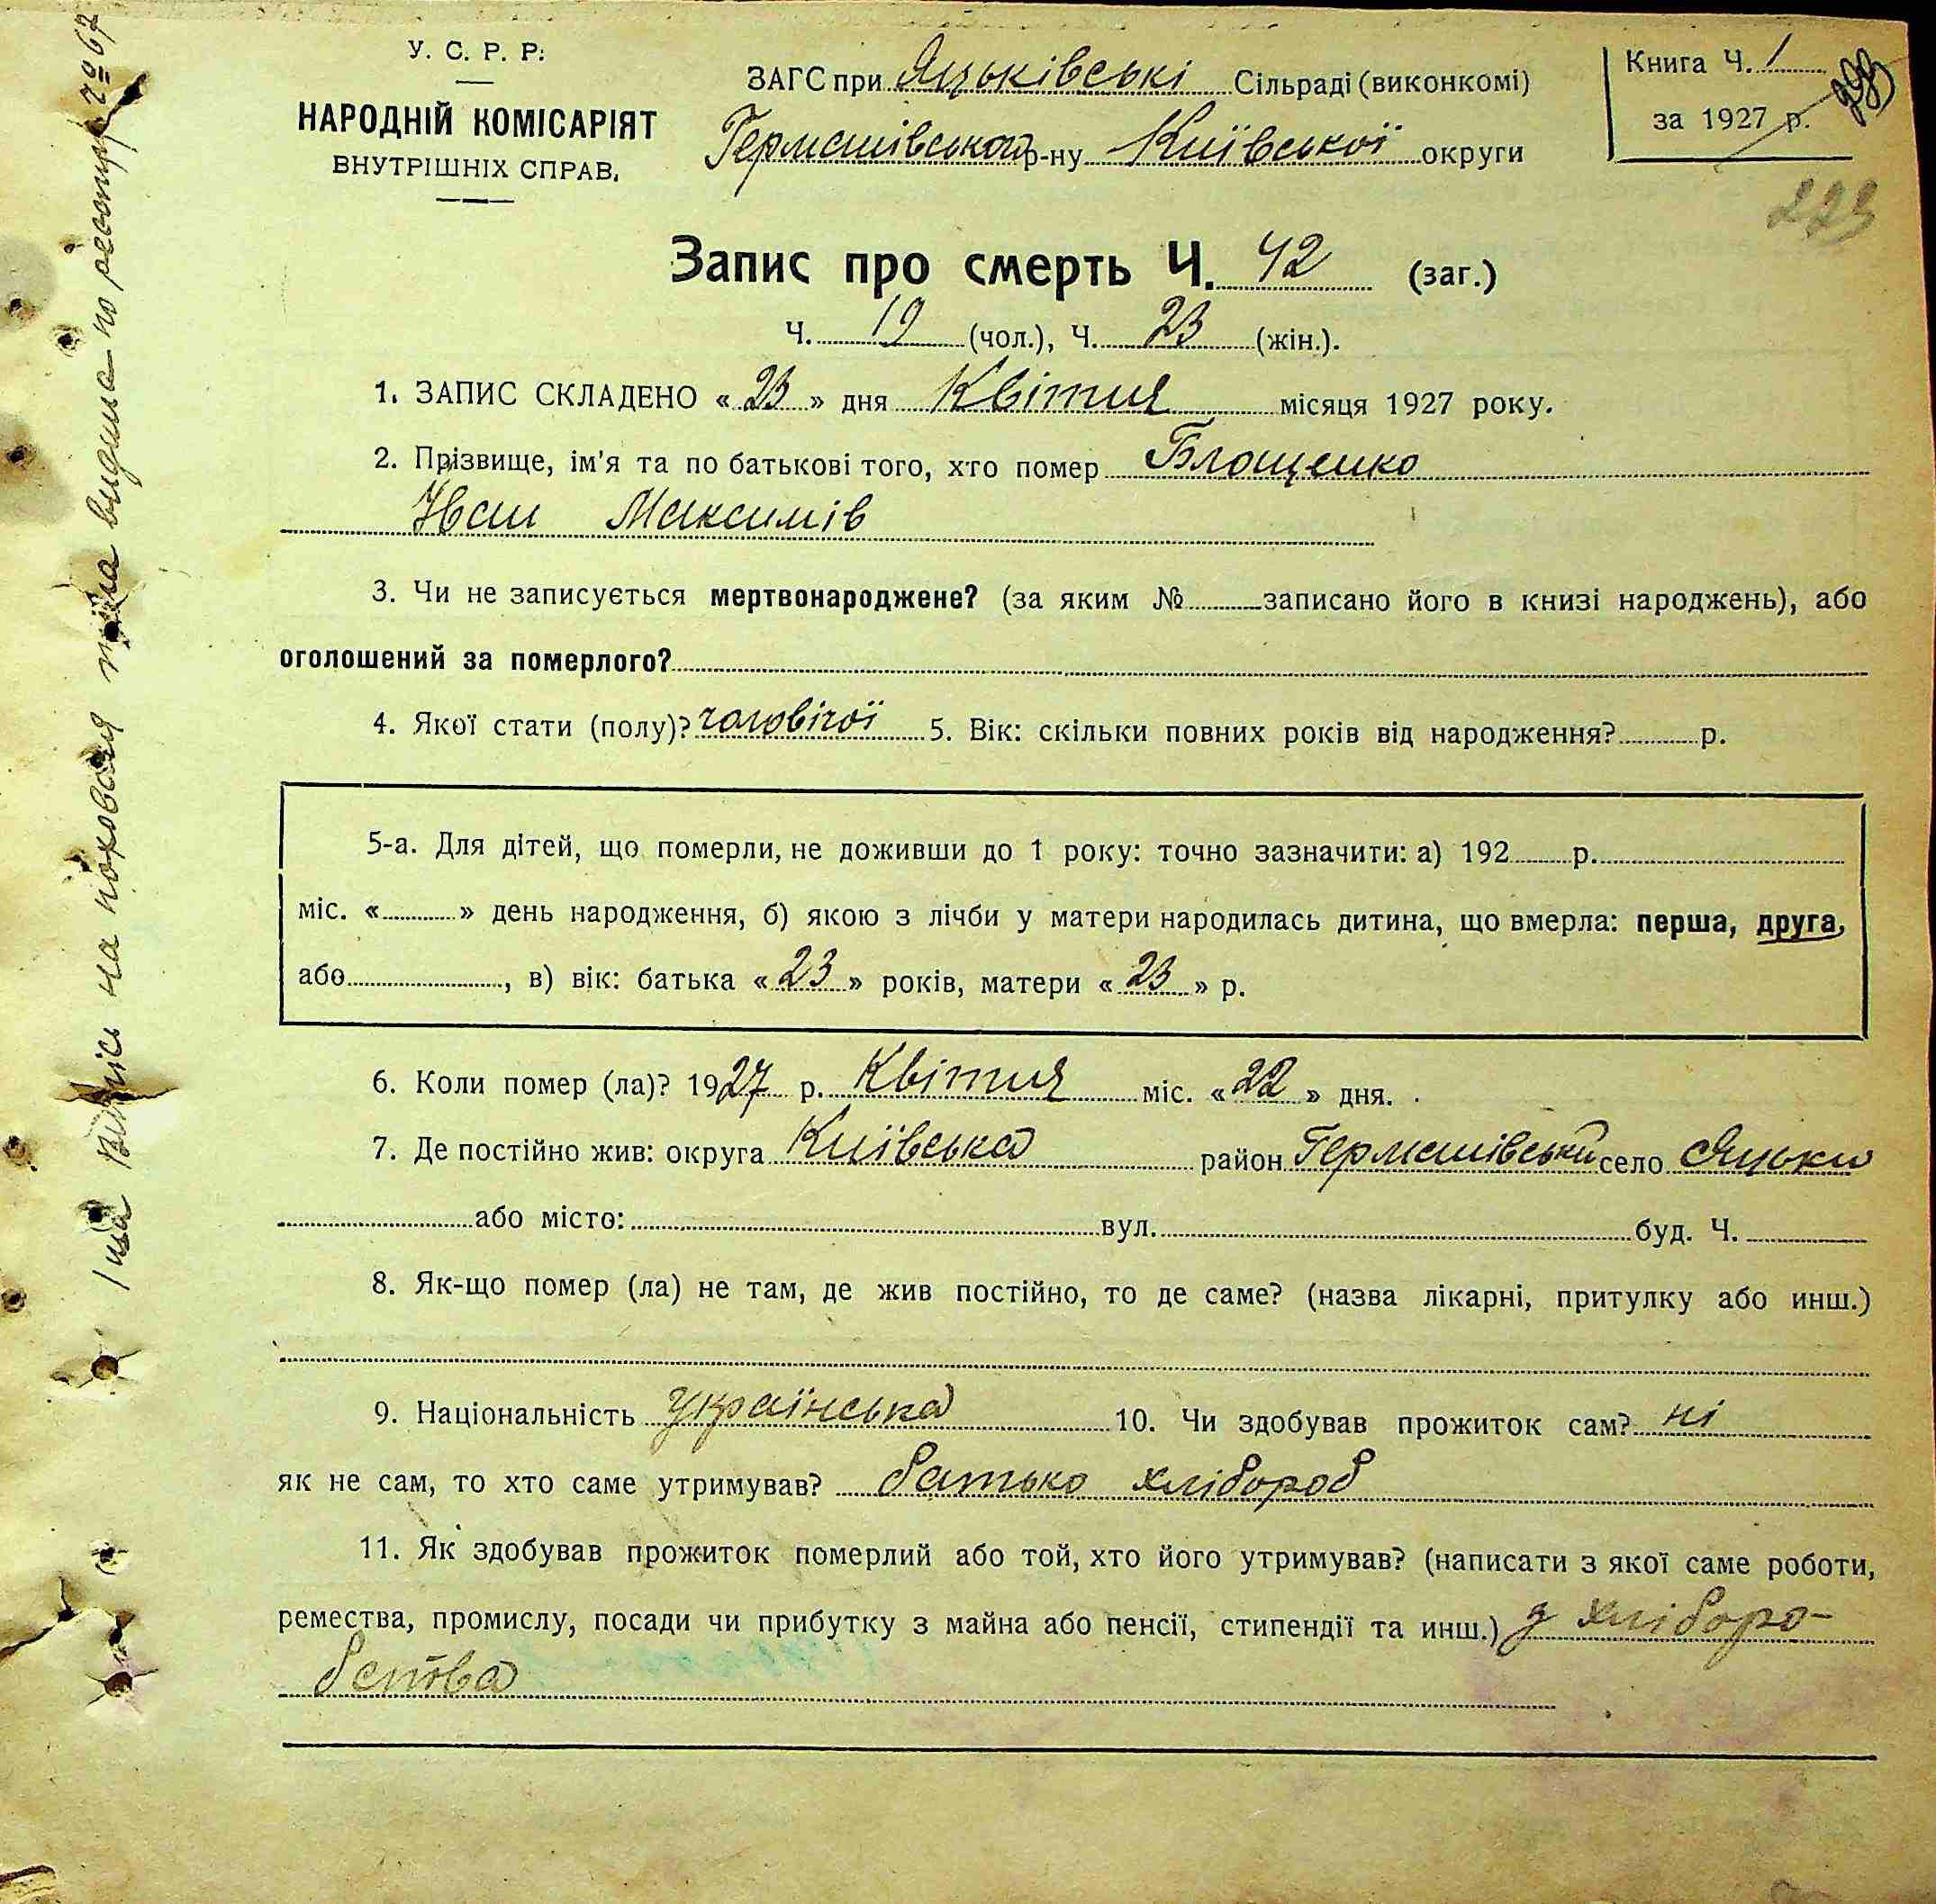 У. С. Р. Р.
НАРОДНІЙ КОМІСАРІЯТ
ВНУТРІШНІХ СПРАВ.
ЗАГС при Яцьківські Сільраді (виконкомі)
Германівськог р-ну Київської округи
Книга Ч. 1
за 1927 р.
223
Запис про смерть Ч. 42 (заг.)
Ч. 19 (чол.), Ч. 23 (жін.).
1. ЗАПИС СКЛАДЕНО « 23 » дня Квітня місяця 1927 року.
2. Прізвище, ім'я та по батькові того, хто помер Блощенко
Іван Максимів
3. Чи не записується мертвонароджене? (за яким № записано його в книзі народжень), або
оголошений за померлого?
4. Якої стати (полу)? чоловічої 5. Вік: скільки повних років від народження? р.
5-а. Для дітей, що померли, не доживши до 1 року: точно зазначити: а) 192 р.
міс. « » день народження, б) якою з лічби у матери народилась дитина, що вмерла: перша, друга,
або , в) вік: батька « 23 » років, матери « 23 » р.
6. Коли помер (ла)? 1927 р. Квітня міс. « 22 » дня.
7. Де постійно жив: округа Київська район Германівськи село Яцьки
або місто: вул. буд. Ч.
8. Як-що помер (ла) не там, де жив постійно, то де саме? (назва лікарні, притулку або инш.)
9. Національність українська 10. Чи здобував прожиток сам? ні
як не сам, то хто саме утримував? батько хлібороб
11. Як здобував прожиток померлий або той, хто його утримував? (написати з якої саме роботи,
ремества, промислу, посади чи прибутку з майна або пенсії, стипендії та инш.) з хліборо-
бства
на поховання тіла видана по реестру № 67